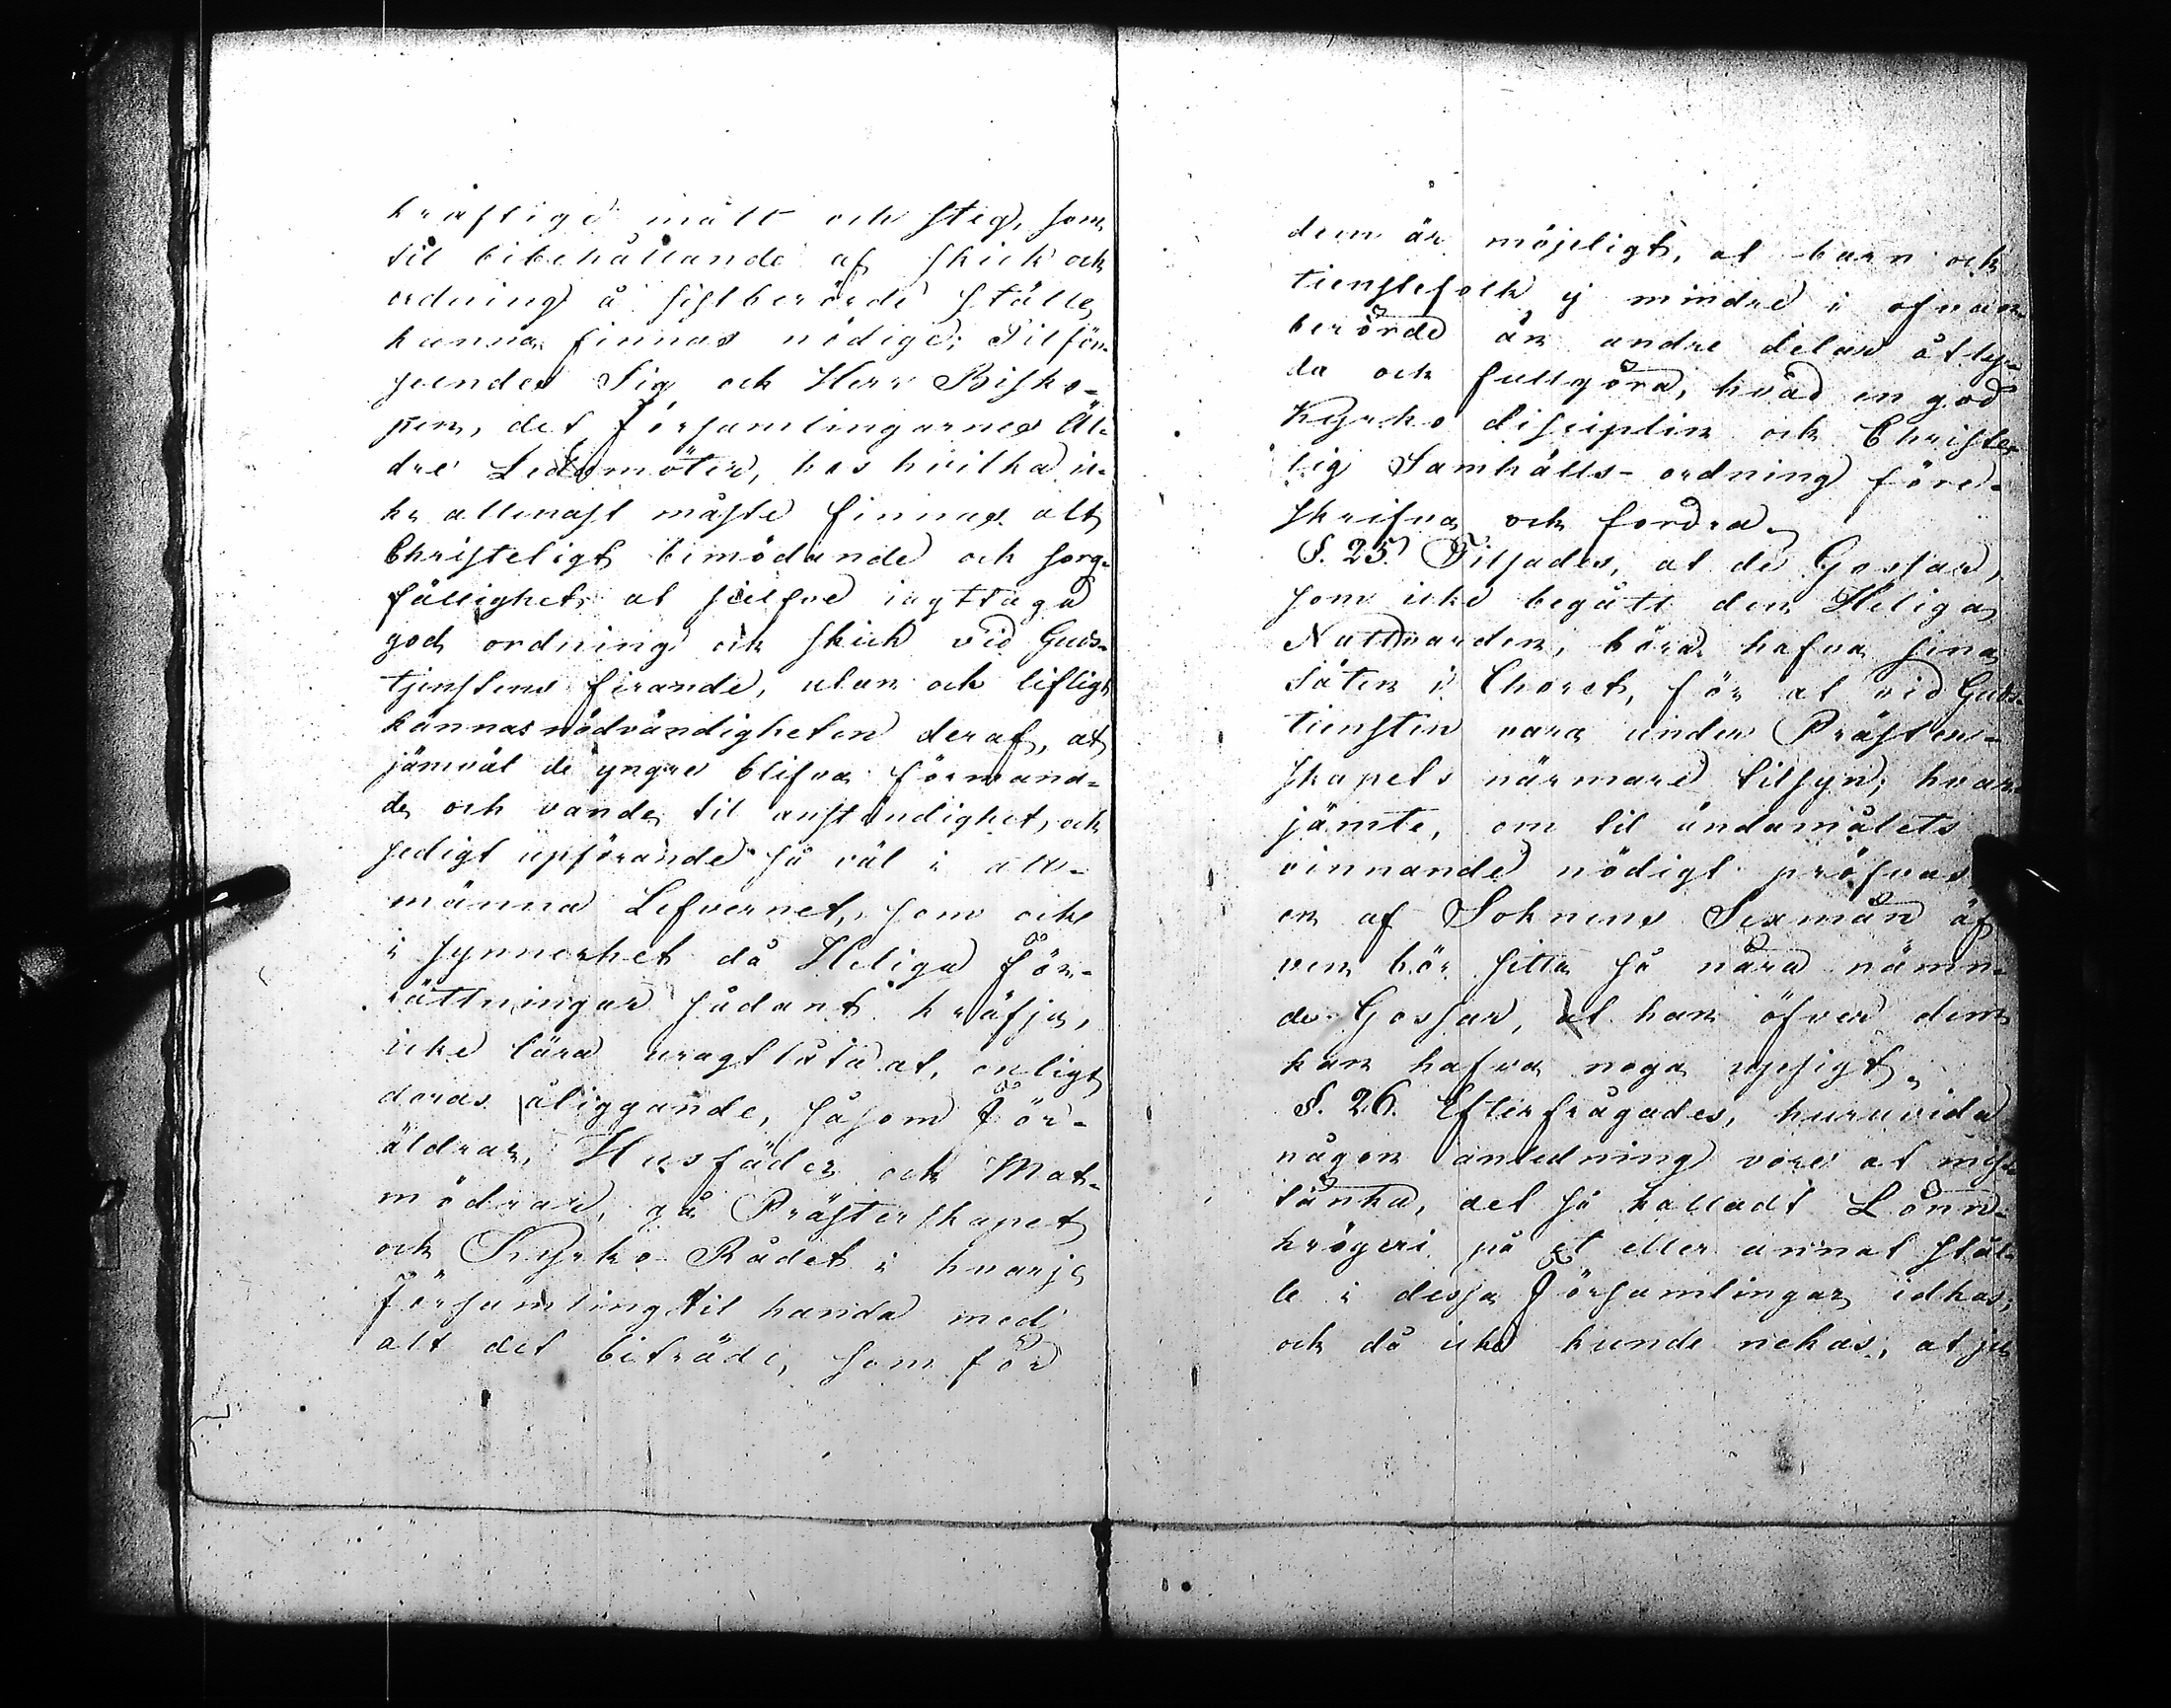 kraftige mått och steg, som
til bibehållande af skick och
ordning å sistberörde ställe
kunna finnas nödige; Tilför-
seendes Sig ock Herr Bisko-
pen, det Församlingarnes Äl-
dre Ledamöter, hos hvilka ic-
ke allenast måste finnas alt
Christeligt bemödande och sorg-
fällighet at sielfve iagttaga
god ordning och skick vid Guds-
tjenstens firande, utan ock lifligt
kännas nödvändigheten deraf, at
jämväl de yngre blifva förmand-
de och vande til anständighet, och
sedigt upförande så väl i all-
männa Lefvernet, som ock
i synnerhet då Heliga För-
rättningar sådant kräfja,
icke lära uragtlåta at, enligt
deras åliggande, såsom För-
äldrar, Husfäder och Mat-
mödrar, gå Prästerskapet
och Kyrko-Rådet i hvarje
Församling til handa med
alt det biträde, som för
dem är möjeligt, at barn och
tienstefolk ej mindre i ofvan-
berörde än andre delar åtly-
da och fullgöra, hvad en god
Kyrko disciplin och Christe-
lig Samhälls-ordning före-
skrifva och fordra.
§. 25. Tilsades, at de Gossar,
som icke begått den Heliga
Nattvarden, böra hafva sina
säten i Choret, för at vid Guds-
tiensten vara under Präster-
skapets närmare tilsyn; hvar-
jämte, om til ändamålets
vinnande nödigt pröfvas,
en af Soknens Sexmän äf
ven bör sitta så nära nämn-
de Gossar, at han öfver dem
kan hafva noga upsigt.
§. 26. Efterfrågades, huruvida
någon anledning vore at miss
tänka, det så kalladt Lönn-
krögeri på et eller annat stäl-
le i dessa Församlingar idkas;
och då icke kunde nekas, at ju